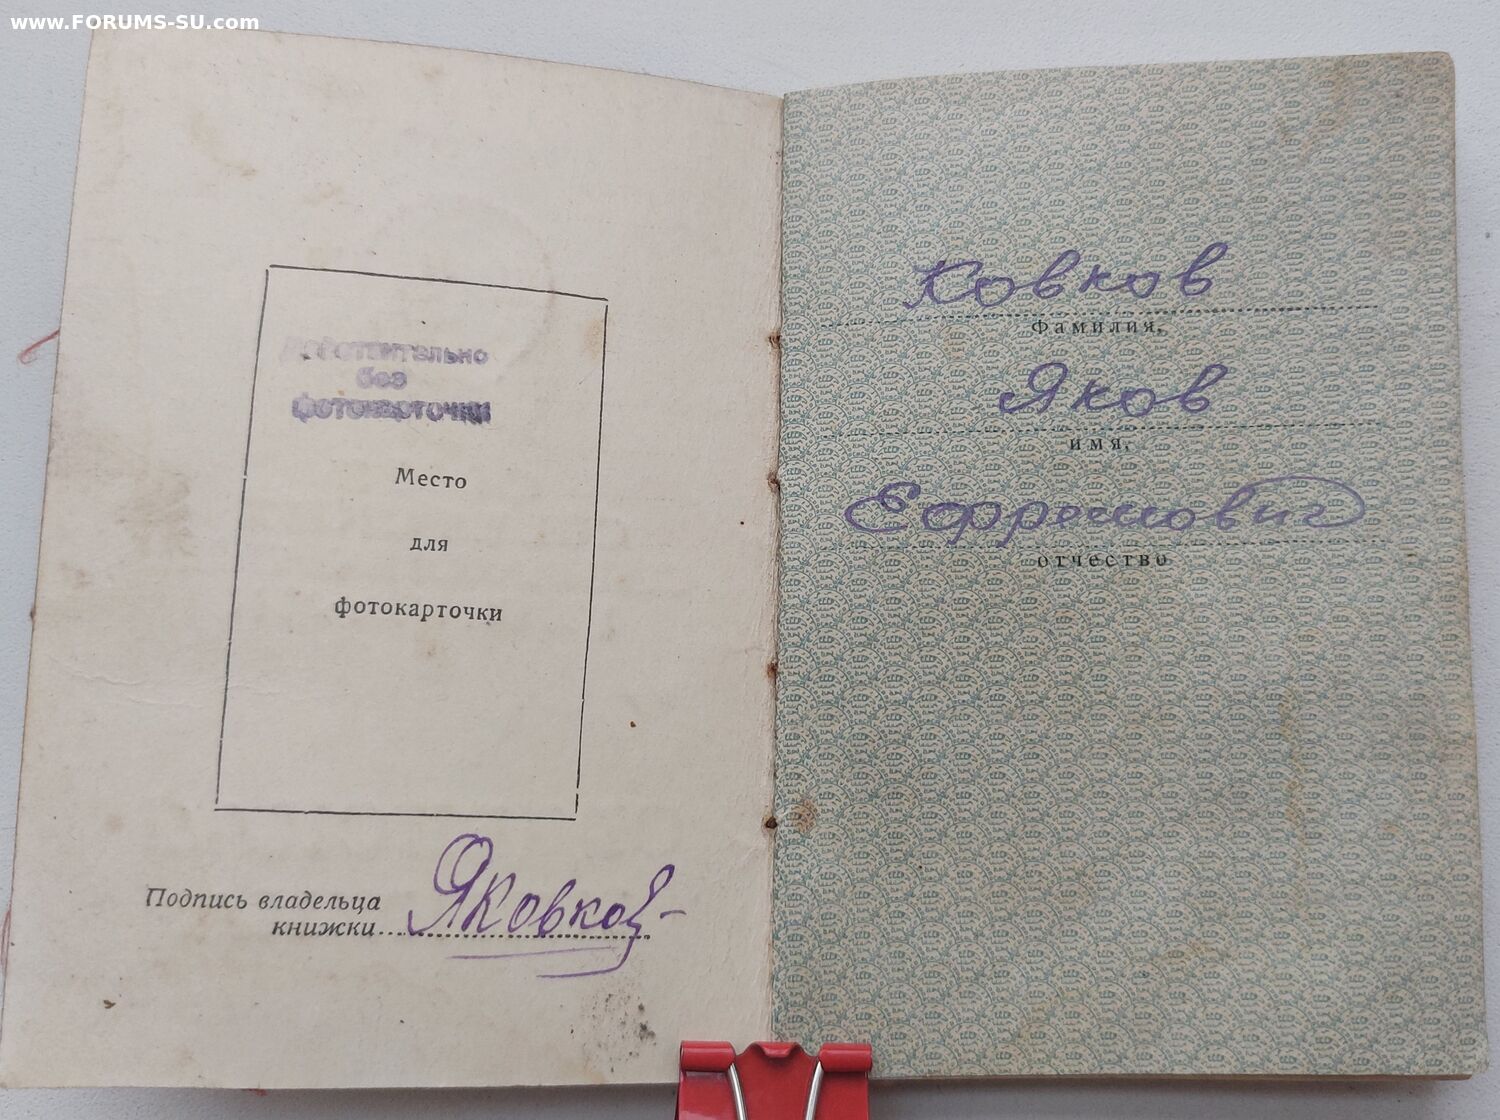 www.FORUMS-SU.com
Действительно
без
фотокарточки
Место
для
фотокарточки
Подпись владельца
книжки....ЯКовков
Ковков
Фамилия,
Яков
имя,
Ефремович
отчество